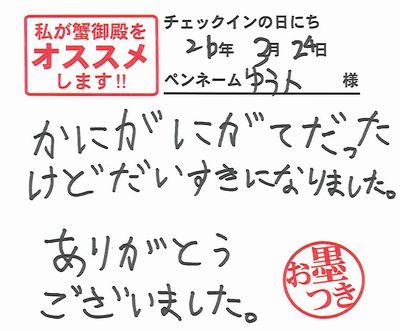 私が蟹御殿を
オススメ
します!!
チェックインの日にち
26年 3月 24日
ペンネーム ゆうト 様
かにがにがてだった
けどだいすきになりました。
ありがとう
ございました。
お墨つき